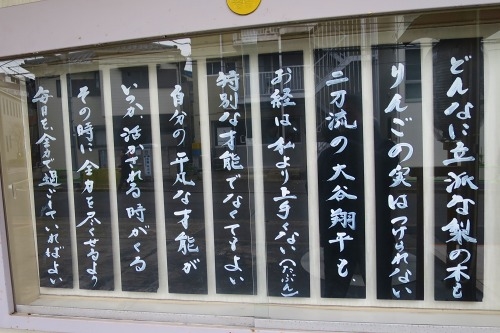 どんなに立派な梨の木も
りんごの実はつけられない
二刀流の大谷翔平も
お経は、私より上手くない（たぶん）
特別な才能でなくてもよい
自分の平凡な才能が
いつか、活かされる時がくる
その時に全力を尽くせるよう
毎日を、全力で過ごしていればよい